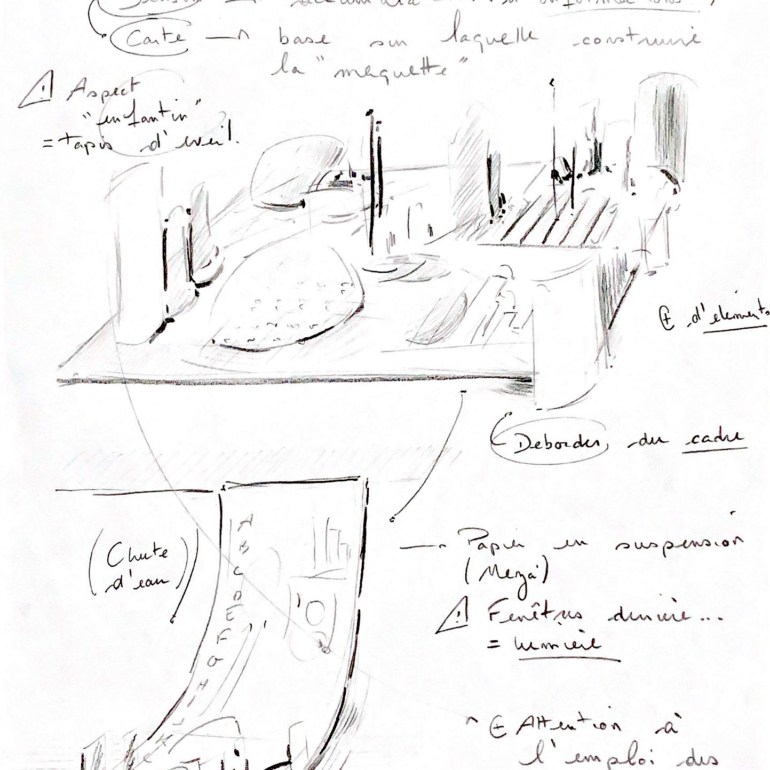 Carte → base sur laquelle construire
la "maquette"
⚠ Aspect
"enfantin"
= tapis d'éveil.
⊕ d'éléments
Déborder du cadre
(Chute
d'eau)
A B C D E F G H I
— Papier en suspension
(Mezza)
⚠ Fenêtres derrière...
= lumière
⊕ Attention à
l'emploi des